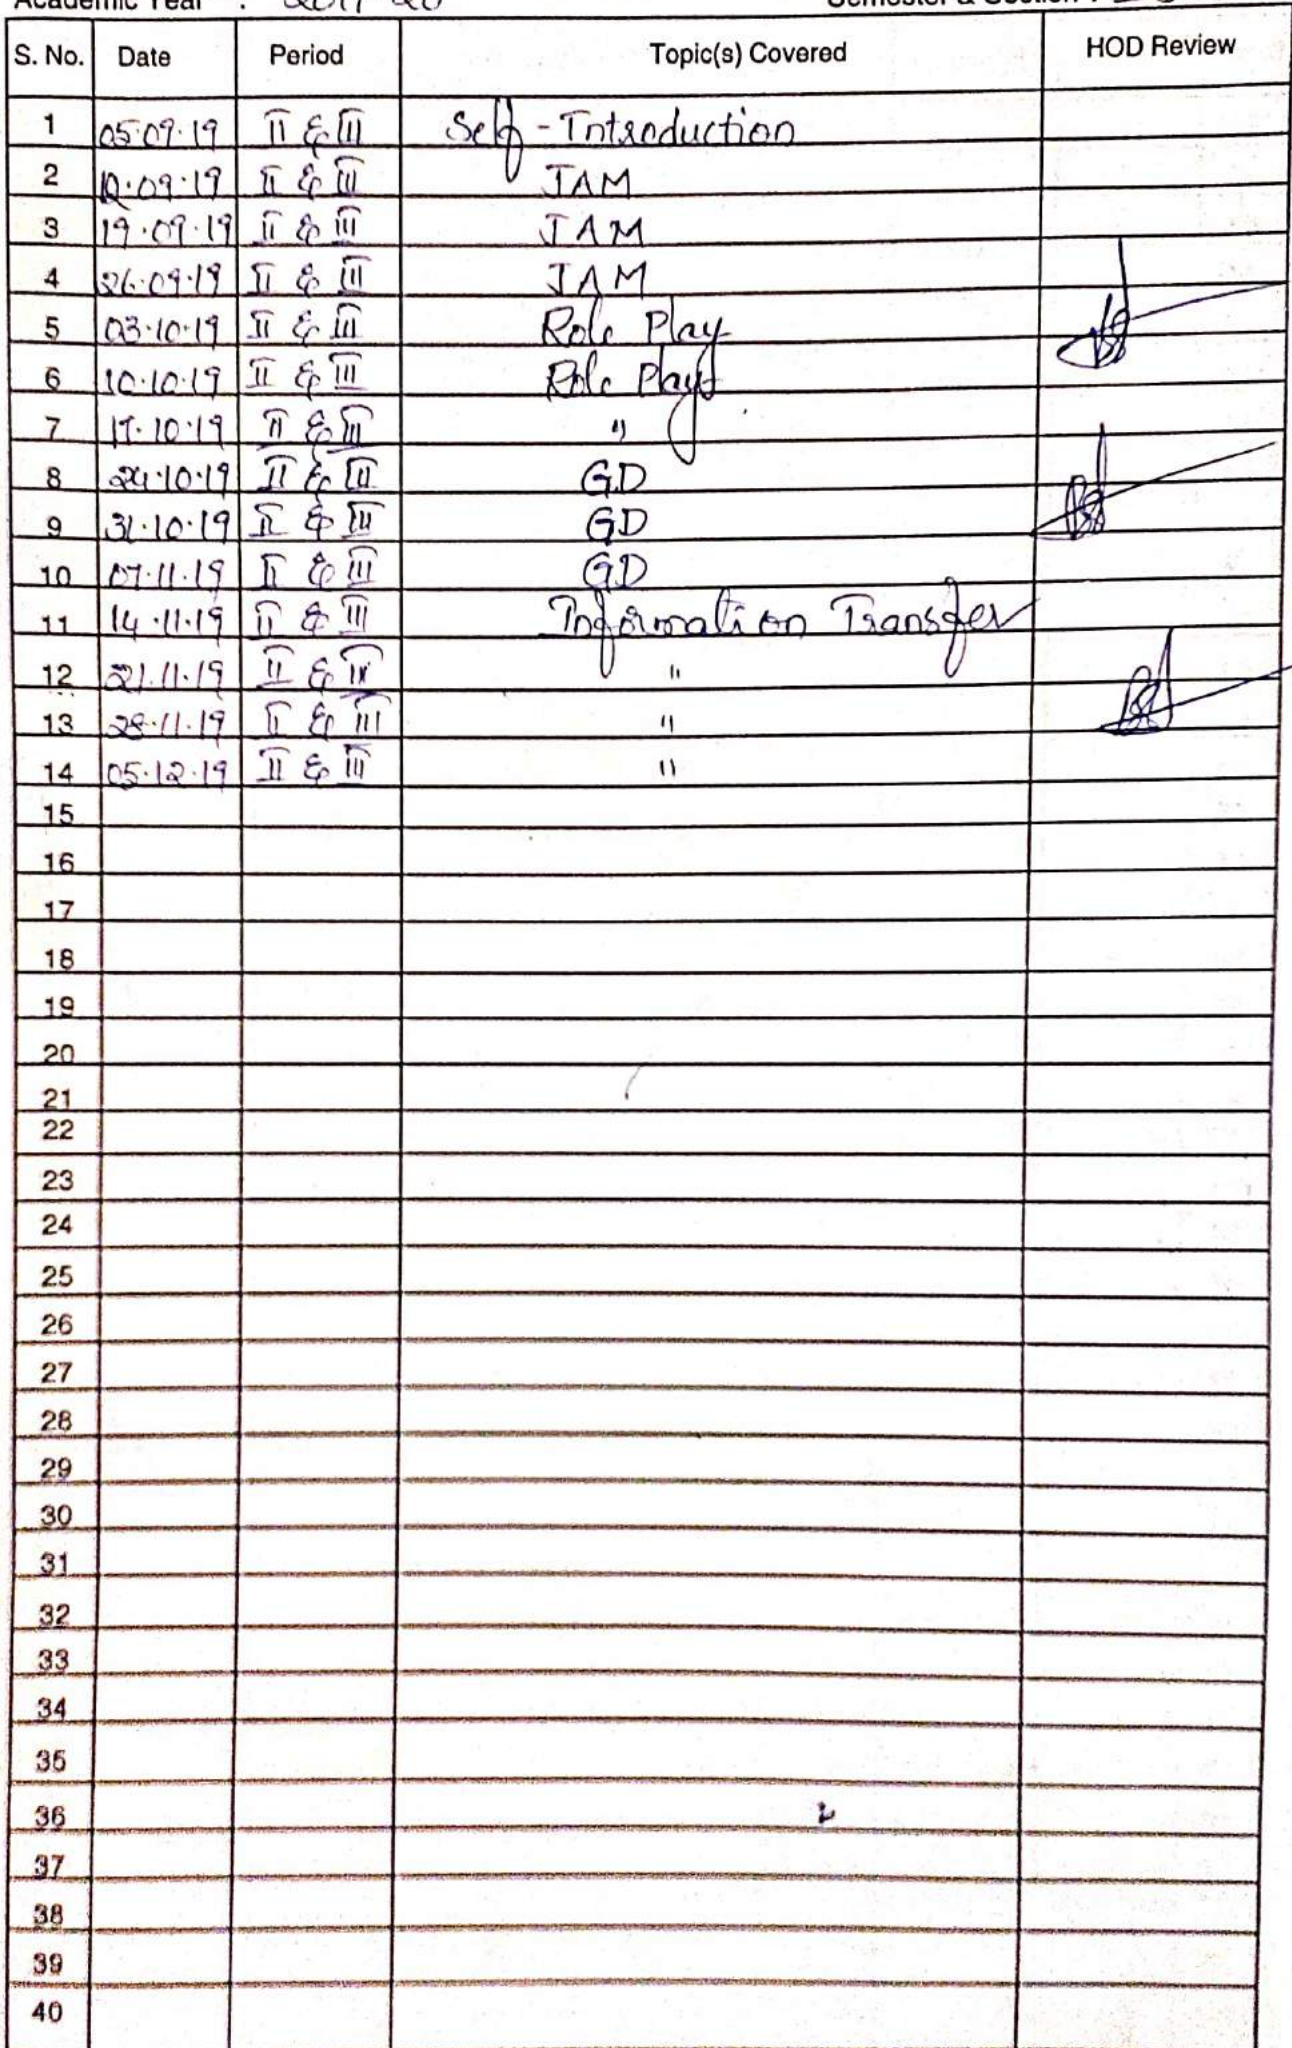 Academic Year : 2019-20 Semester & Section :
S. No. Date Period Topic(s) Covered HOD Review
1 05.09.19 II & III Self-Introduction
2 12.09.19 II & III JAM
3 19.09.19 II & III JAM
4 26.09.19 II & III JAM
5 03.10.19 II & III Role Play
6 10.10.19 II & III Role Plays
7 17.10.19 II & III "
8 24.10.19 II & III GD
9 31.10.19 II & III GD
10 07.11.19 II & III GD
11 14.11.19 II & III Information Transfer
12 21.11.19 II & III "
13 28.11.19 II & III "
14 05.12.19 II & III "
15
16
17
18
19
20
21
22
23
24
25
26
27
28
29
30
31
32
33
34
35
36
37
38
39
40